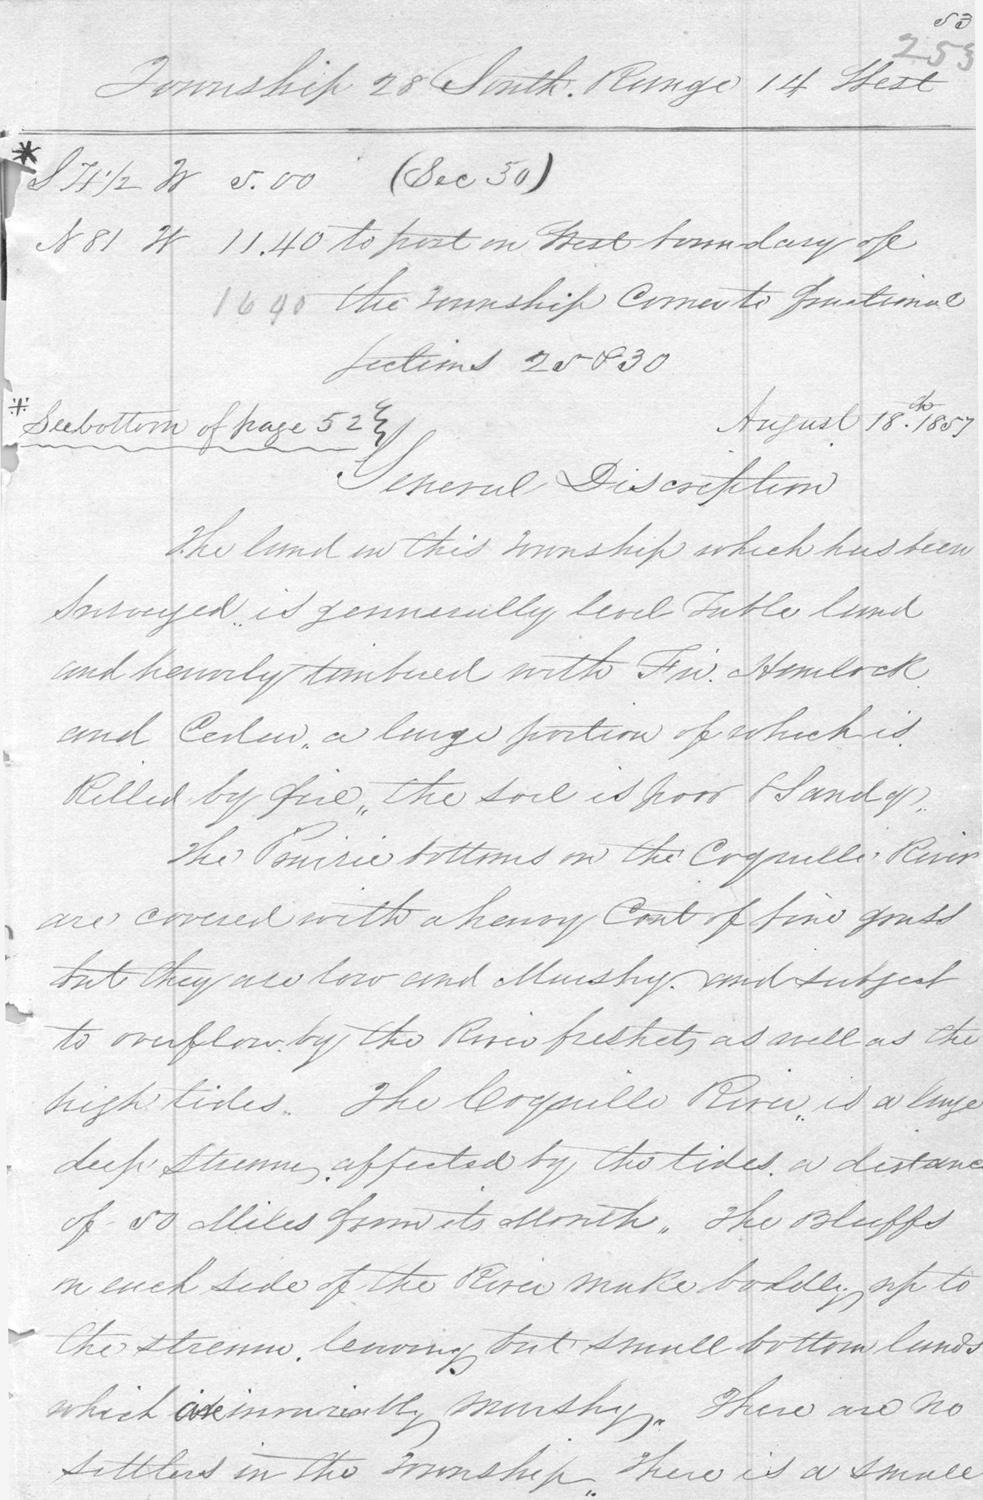 53
253
Township 28 South. Range 14 West
* S 74 1/2 W 5.00 (Sec 30)
N 81 W 11.40 to post on West boundary of
1640 the Township Corner to fractional
sections 25 & 30
* See bottom of page 52 } August 18.th 1857
General Discription
The land in this Township which has been
Surveyed, is gennerally level Table land
and heavily timbered with Fir. Hemlock
and Cedar, a large portion of which is
Killed by fire, the soil is poor & Sandy.
The Prairie bottoms on the Coquille River
are covered with a heavy Coat of fine grass
but they are low and Marshy. and subject
to overflow by the River freshets, as well as the
high tides. The Coquille River, is a large
deep Stream, affected by the tides. a distance
of 50 Miles from its Mouth. The Bluffs
on each side of the River make boldly up to
the stream. leaving but small bottom lands
which are invariably marshy. There are no
settlers in the Township. There is a small